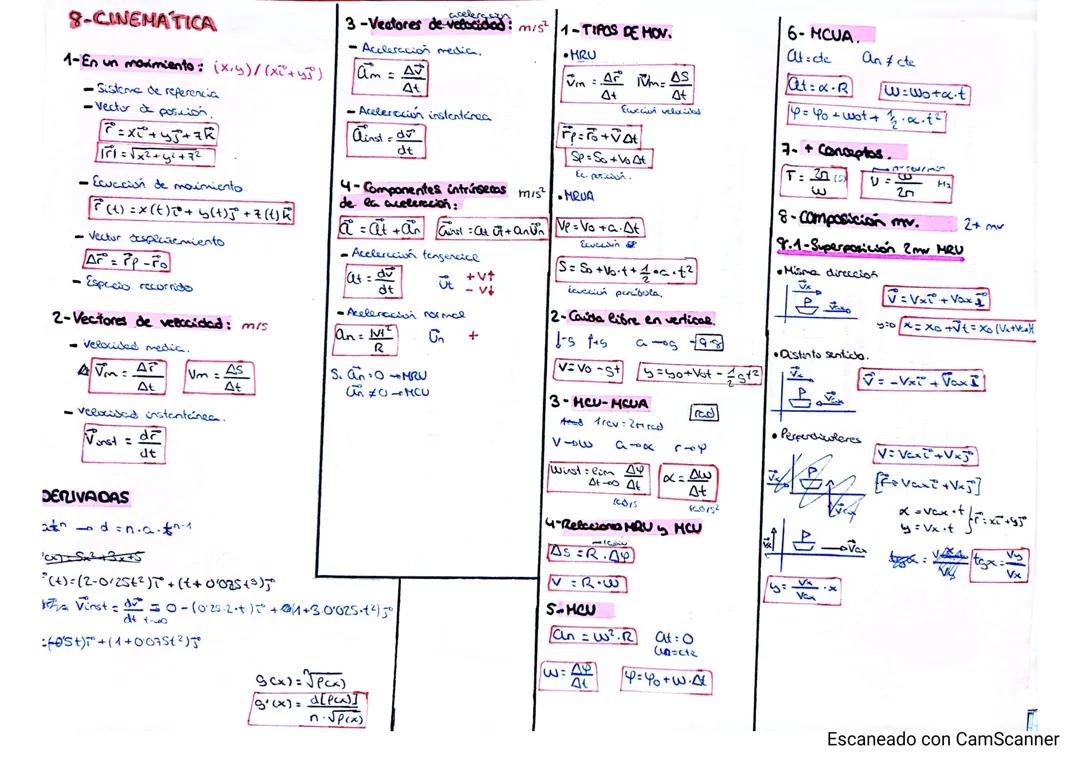 8-CINEMÁTICA
1-En un movimiento: (x,y)/(xi⃗+yj⃗)
- Sistema de referencia
- Vector de posición.
r⃗ = xi⃗ + yj⃗ + zk⃗
|r⃗| = √x²+y²+z²
- Ecuación de movimiento
r⃗(t) = x(t)i⃗ + y(t)j⃗ + z(t)k⃗
- Vector desplazamiento
Δr⃗ = r⃗f - r⃗0
- Espacio recorrido
2-Vectores de velocidad: m/s
- Velocidad media.
V⃗m = Δr⃗/Δt
Vm = ΔS/Δt
- Velocidad instantánea.
V⃗inst = dr⃗/dt
DERIVADAS
→ d = n·a·tⁿ⁻¹
(t) = (2-0'25t²)i⃗ + (t+0'025t³)j⃗
V⃗inst = = 0-(0'25·2·t)i⃗ + (1+3·0'025·t²)j⃗
i⃗ + (1+0'075t²)j⃗
g(x) = ⁿ√f(x)
g'(x) = d[f(x)] / n·√f(x)
3-Vectores de aceleración: m/s²
- Aceleración media.
a⃗m = Δv⃗/Δt
- Aceleración instantánea
a⃗inst = dv⃗/dt
4-Componentes intrínsecas m/s²
de la aceleración:
a⃗ = a⃗t + a⃗n
a⃗inst = at u⃗t + an u⃗n
- Aceleración tangencial
at = dv⃗/dt
u⃗t + v↑
- v↓
- Aceleración normal
an = |v|²/R
u⃗n +
Si a⃗n = 0 → MRU
a⃗n ≠ 0 → MCU
1-TIPOS DE MOV.
• MRU
v⃗m = Δr⃗/Δt
|Vm = ΔS/Δt
Ecuación velocidad
r⃗f = r⃗0 + v⃗Δt
Sf = S0 + V0 Δt
Ec. posición.
• MRUA
Vf = V0 + a·Δt
Ecuación
S = S0 + V0·t + 1/2·a·t²
Ecuación parábola.
2-Caída libre en vertical.
↓-g ↑+g a → g -9'8
V = V0 - gt
y = y0 + V0t - 1/2 gt²
3-MCU-MCUA
rad
1 rev = 2π rad
V → ω a → α r → φ
ωinst = lim Δφ/Δt
Δt→0
α = Δω/Δt
rad/s rad/s²
4-Relaciona MRU y MCU
radio
ΔS = R·Δφ
V = R·ω
5-MCU
an = ω²·R
at = 0
an = cte
ω = Δφ/Δt
φ = φ0 + ω·Δt
6-MCUA.
at = cte an ≠ cte
at = α·R
ω = ω0 + α·t
φ = φ0 + ω0t + 1/2·α·t²
7- + Conceptos.
T = 2π/ω (s)
ν = ω/2π Hz
8-Composición mv. 2+ mv
8.1-Superposición 2mv MRU
• Misma dirección
V⃗ = Vxi⃗ +
y=0 x = x0 + v⃗t = x0
• Distinto sentido.
V⃗ = -Vxi⃗ +
• Perpendiculares
V = Vaxi⃗ + Vxj⃗
[r⃗ = Vaxi⃗ + Vxj⃗]
x = Vax·t
y = Vx·t
r⃗ = xi⃗ + yj⃗
tgα = Vy/Vx
y = Vx/Vax · x
Escaneado con CamScanner